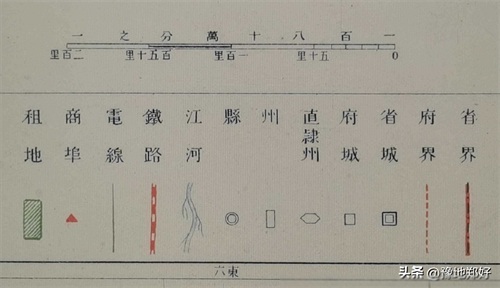 一百八十萬分之一
0 五十里 一百里 百五十里 二百里
省界
府界
省城
府城
直隸州
州
縣
江河
鐵路
電線
商埠
租地
東六
头条 @豫地郑好